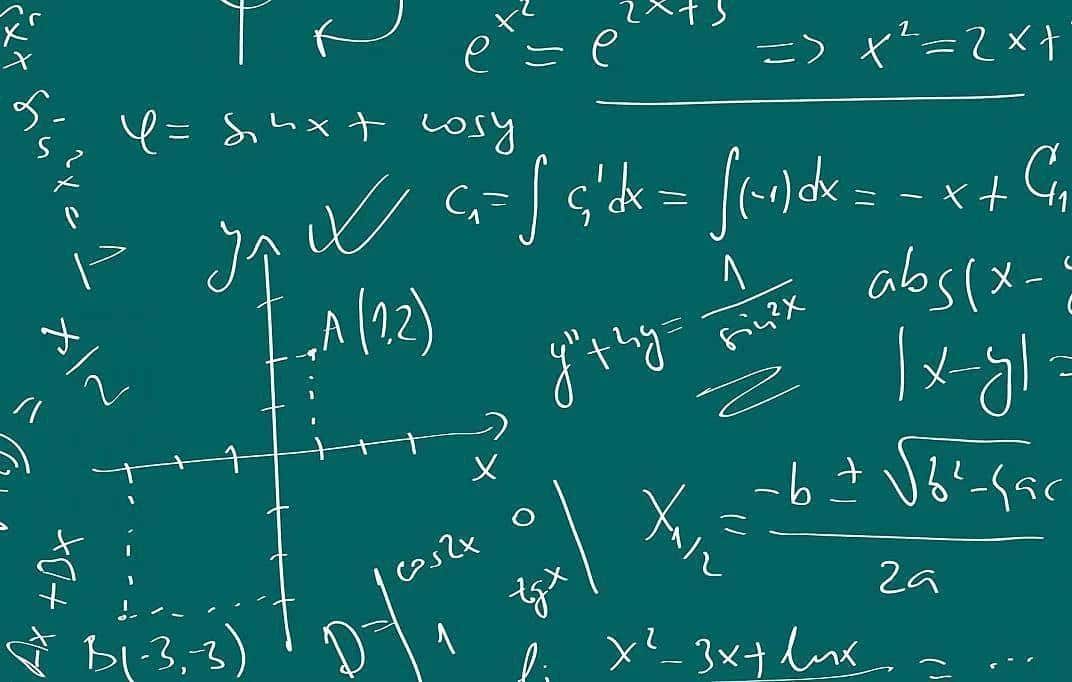 e^{x^2} = e^{2x+3} => x^2 = 2x+
φ = sin x + cos y
C_1 = ∫ C_1' dx = ∫ (-1) dx = -x + C_1
y
A(1,2)
y'' + 4y = 1 / sin^2 x
abs(x -
|x-y| =
x/2
X
X_{1/2} = -b ± √b²-4ac / 2a
B(-3,-3)
D = | cos2x 0
1 tgx |
x² - 3x + lnx = ...